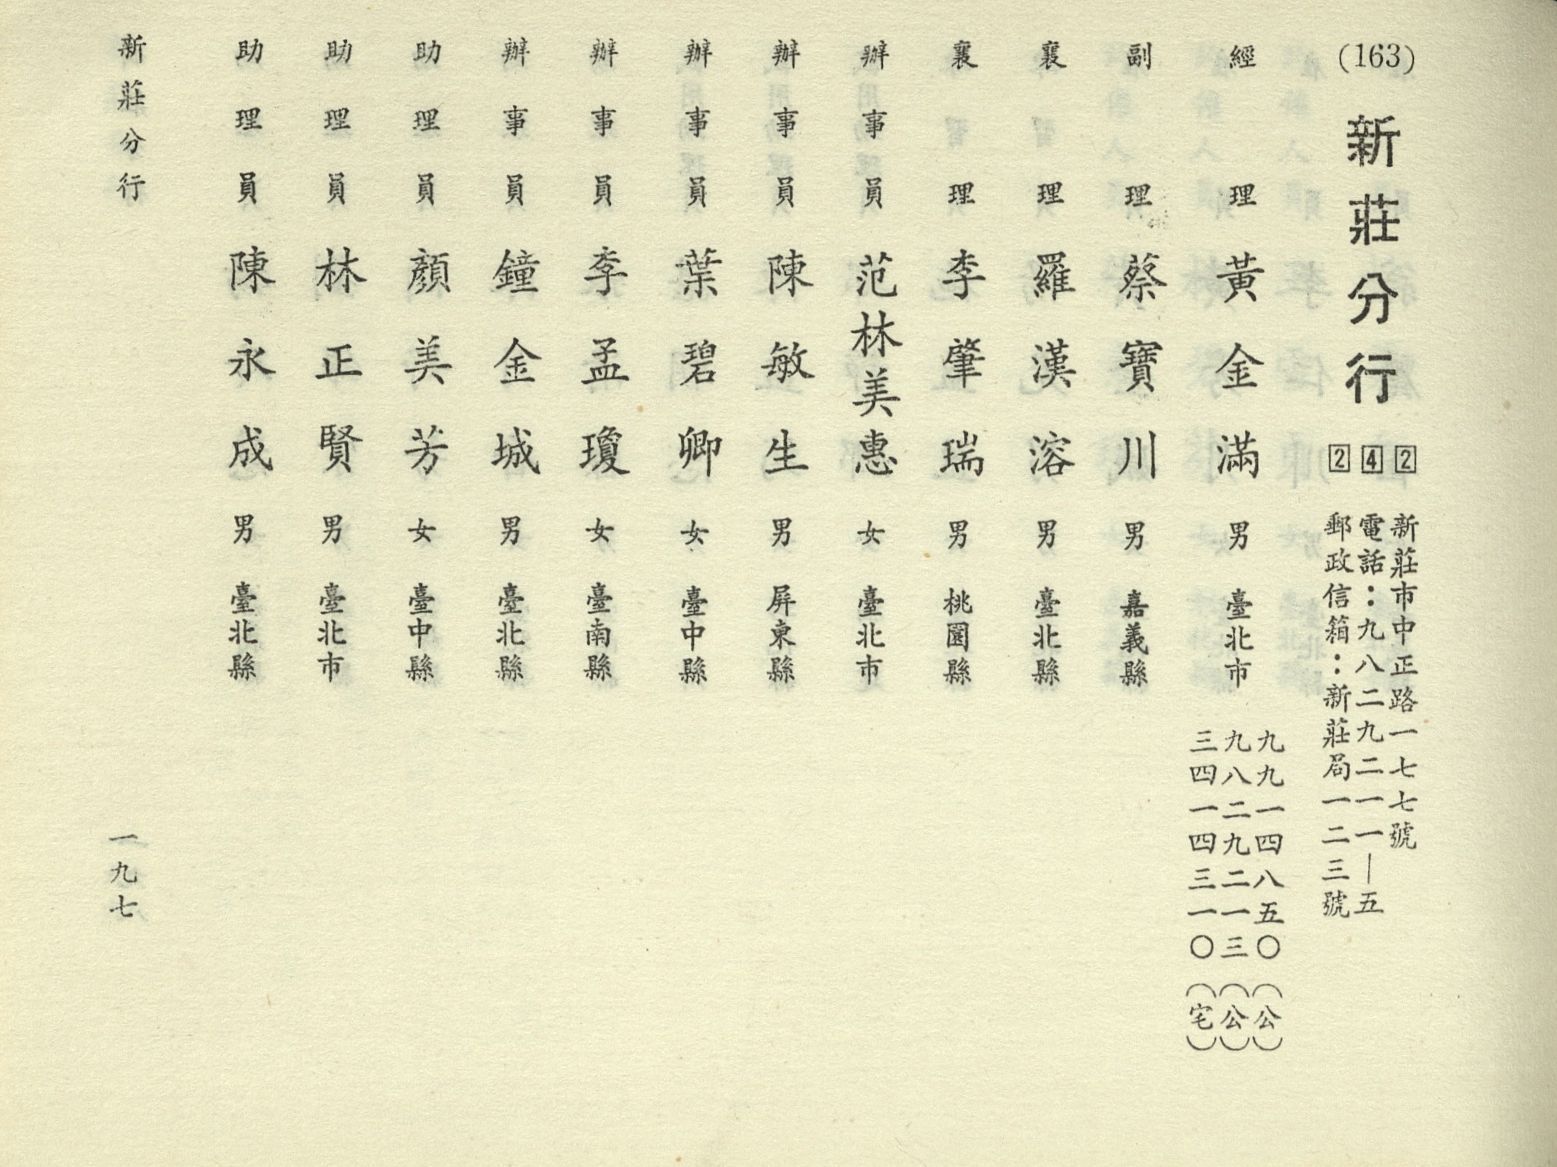 (163)
新莊分行
242
新莊市中正路一七七號
電話：九八二九二一一—五
郵政信箱：新莊局一二三號
經理 黃金滿 男 臺北市
九九一四八五〇（公）
九八二九二一三（公）
三四一四三一〇（宅）
副理 蔡寶川 男 嘉義縣
襄理 羅漢溶 男 臺北縣
襄理 李肇瑞 男 桃園縣
辦事員 范林美惠 女 臺北市
辦事員 陳敏生 男 屏東縣
辦事員 葉碧卿 女 臺中縣
辦事員 李孟瓊 女 臺南縣
辦事員 鐘金城 男 臺北縣
助理員 顏美芳 女 臺中縣
助理員 林正賢 男 臺北市
助理員 陳永成 男 臺北縣
新莊分行
一九七